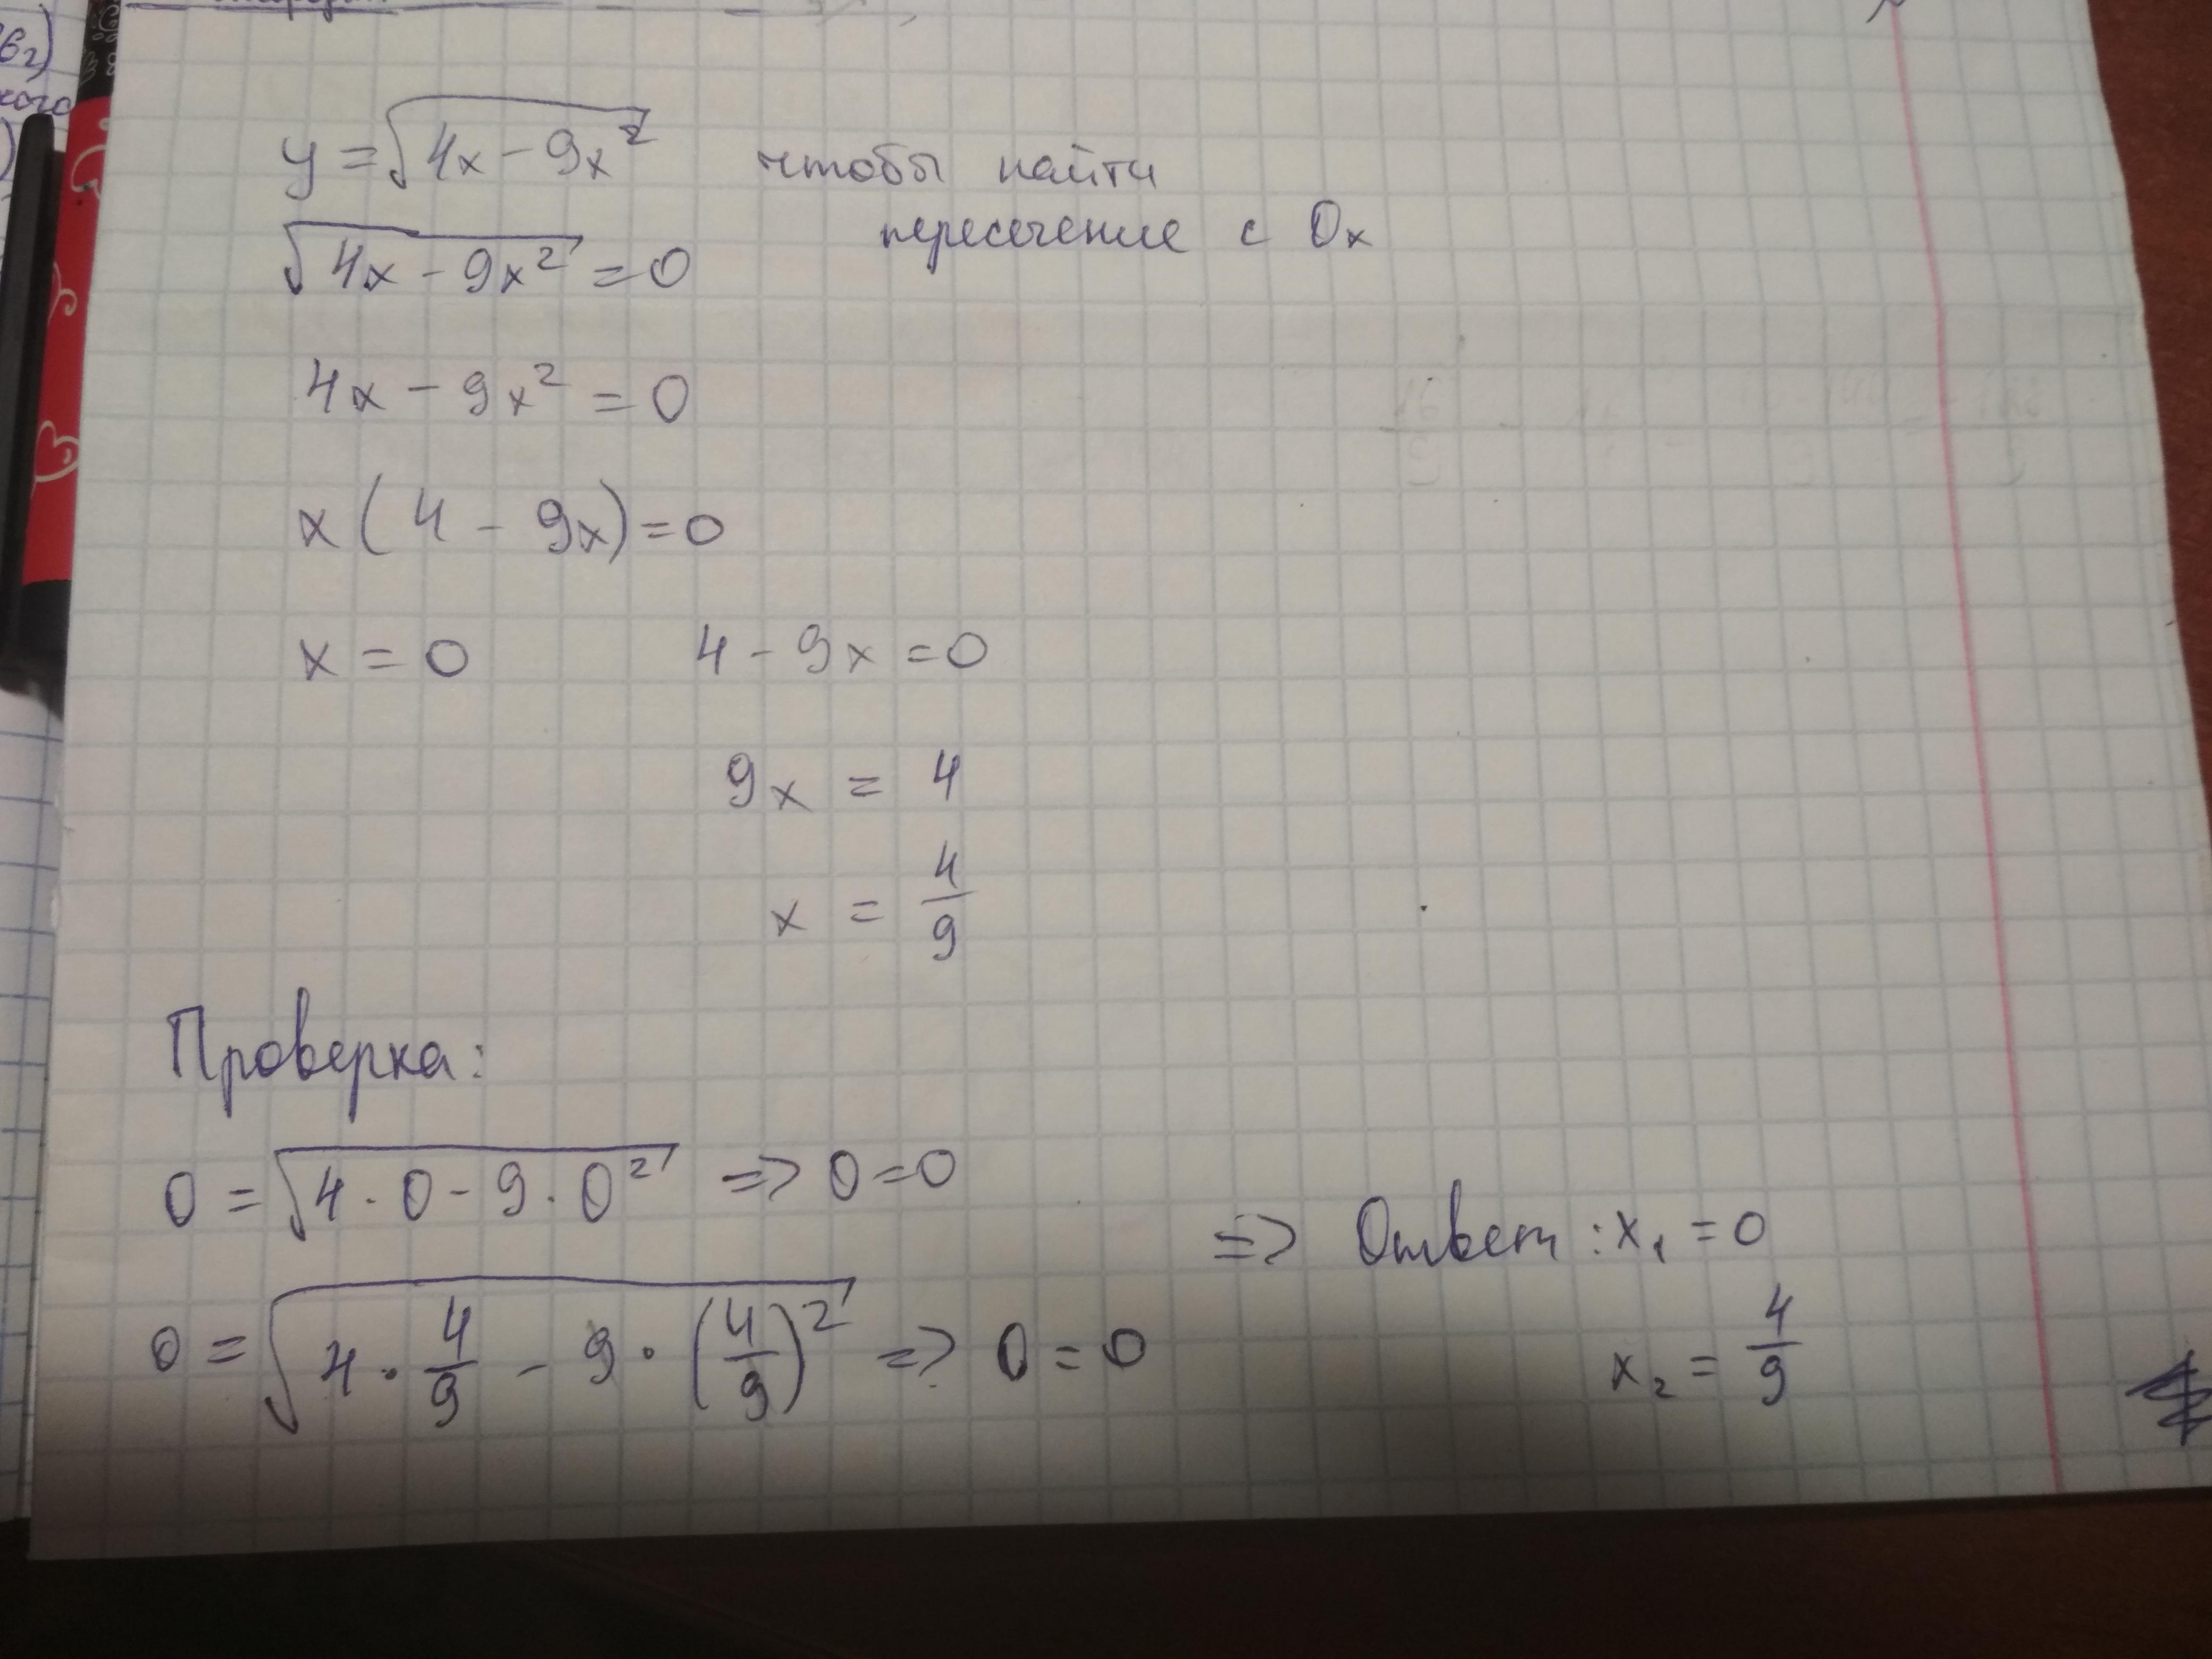 y = √(4x - 9x²) чтобы найти
пересечение с Ox
√(4x - 9x²) = 0
4x - 9x² = 0
x(4 - 9x) = 0
x = 0 4 - 9x = 0
9x = 4
x = 4/9
Проверка:
0 = √(4 · 0 - 9 · 0²) => 0 = 0
=> Ответ: x₁ = 0
0 = √(4 · 4/9 - 9 · (4/9)²) => 0 = 0
x₂ = 4/9